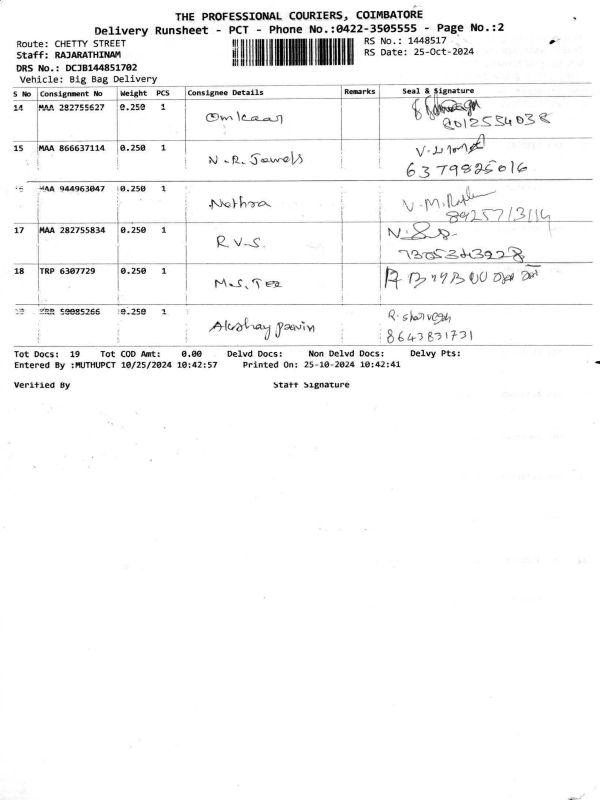 THE PROFESSIONAL COURIERS, COIMBATORE
Delivery Runsheet - PCT - Phone No.:0422-3505555 - Page No.:2
Route: CHETTY STREET
RS No.: 1448517
Staff: RAJARATHINAM
RS Date: 25-Oct-2024
DRS No.: DCJB144851702
Vehicle: Big Bag Delivery
S No Consignment No Weight PCS Consignee Details Remarks Seal & Signature
14 MAA 282755627 0.250 1 Omkaar
8012554038
15 MAA 866637114 0.250 1 N.R. Jewels
6379825016
MAA 944963047 0.250 1 Nethra
8925713114
17 MAA 282755834 0.250 1 R.V.S.
7305343228
18 TRP 6307729 0.250 1 M.S. Tex
50085266 0.250 1 Akshay
8643831731
Tot Docs: 19 Tot COD Amt: 0.00 Delvd Docs: Non Delvd Docs: Delvy Pts:
Entered By :MUTHUPCT 10/25/2024 10:42:57 Printed On: 25-10-2024 10:42:41
Verified By Staff Signature